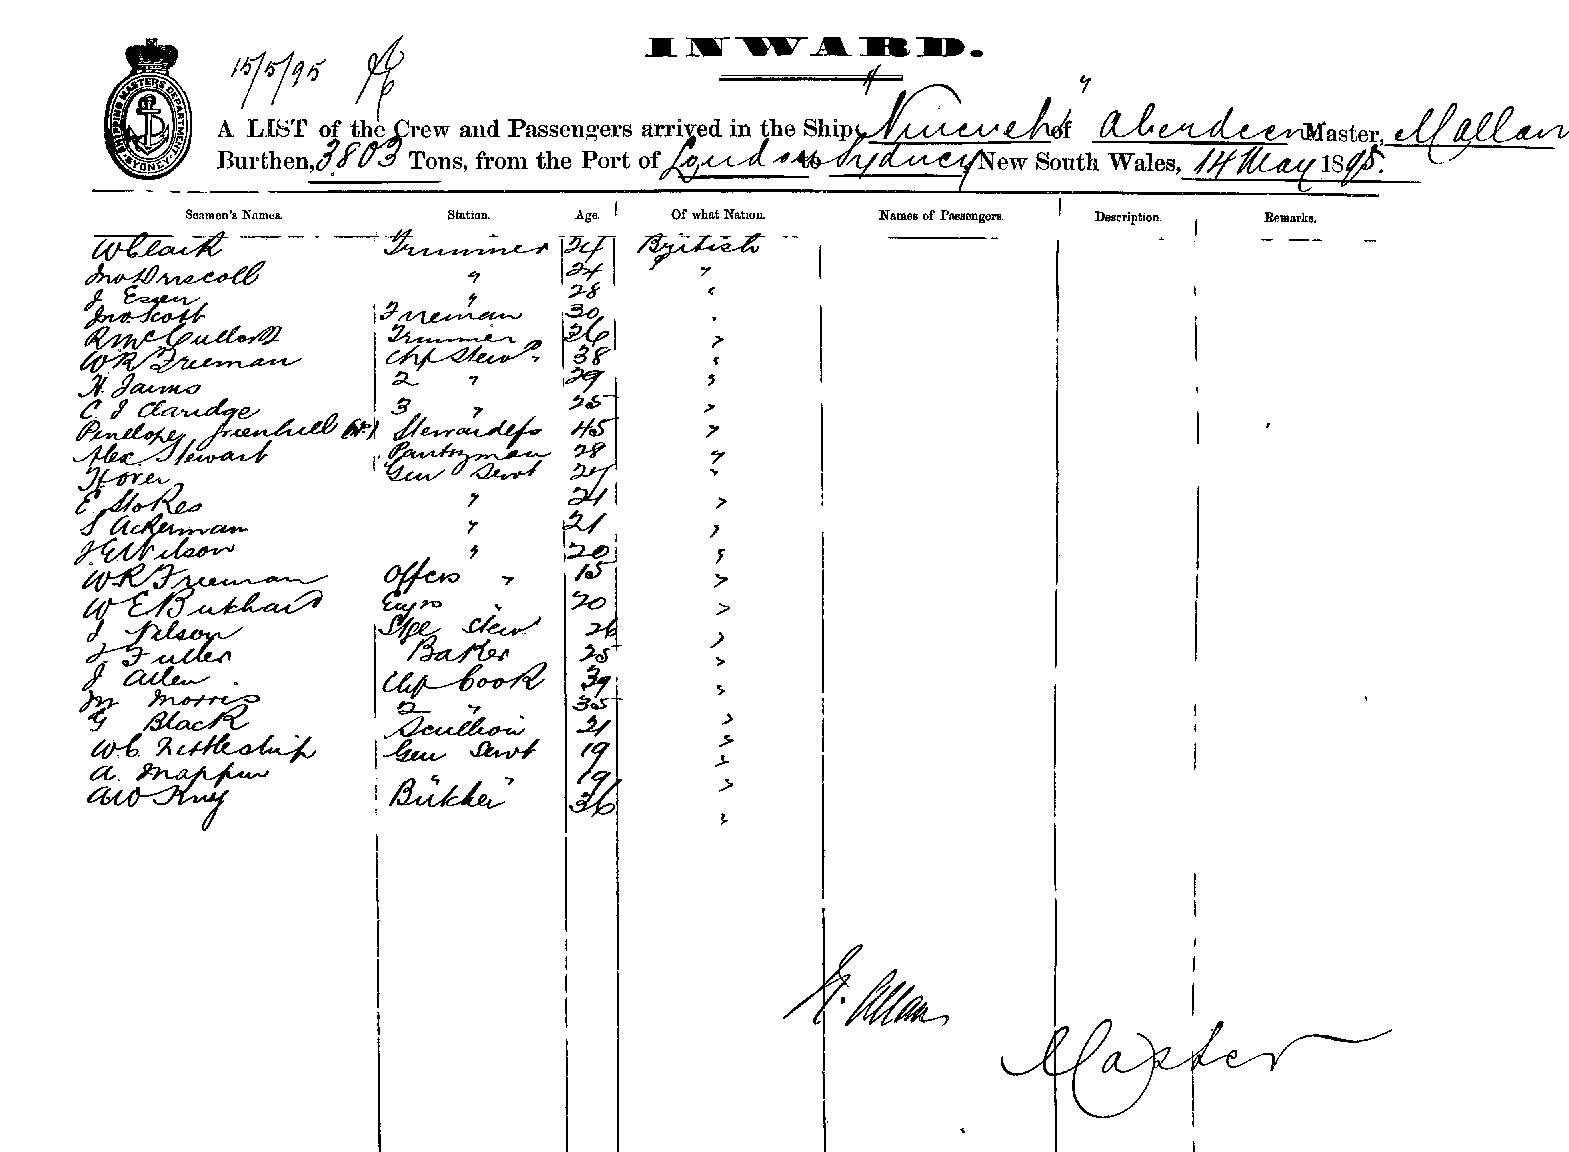 INWARD.
15/5/95
SHIPPING MASTERS DEPARTMENT SYDNEY
A LIST of the Crew and Passengers arrived in the Ship "Nineveh" of Aberdeen Master, Allan
Burthen, 3803 Tons, from the Port of London to Sydney New South Wales, 14 May 1895.
Seamen's Names. Station. Age. Of what Nation. Names of Passengers. Description. Remarks.
W Clark Trimmer 24 British
Jno Driscoll " 24 "
J Essen " 28 "
Jno Scott Fireman 30 "
R McCulloch Trimmer 26 "
W R Freeman Chf Stewd 38 "
H. Jaims 2 " 29 "
C J Claridge 3 " 25 "
Penelope Greenhill Stewardess 45 "
Alex Stewart Pantryman 28 "
Gen Servt 24 "
E Stokes " 21 "
S Ackerman " 21 "
J E Wilson " 20 "
W R Freeman Offers " 15 "
W E Burkhard Engrs " 20 "
J Nelson Stge Stew 26 "
J Fuller Baker 25 "
J Allen Chf Cook 39 "
M Morris 2 " 35 "
G Black Scullion 21 "
W C Nettleship Gen Servt 19 "
A. Mappin " " 19 "
A W King Butcher 36 "
Allan
Master